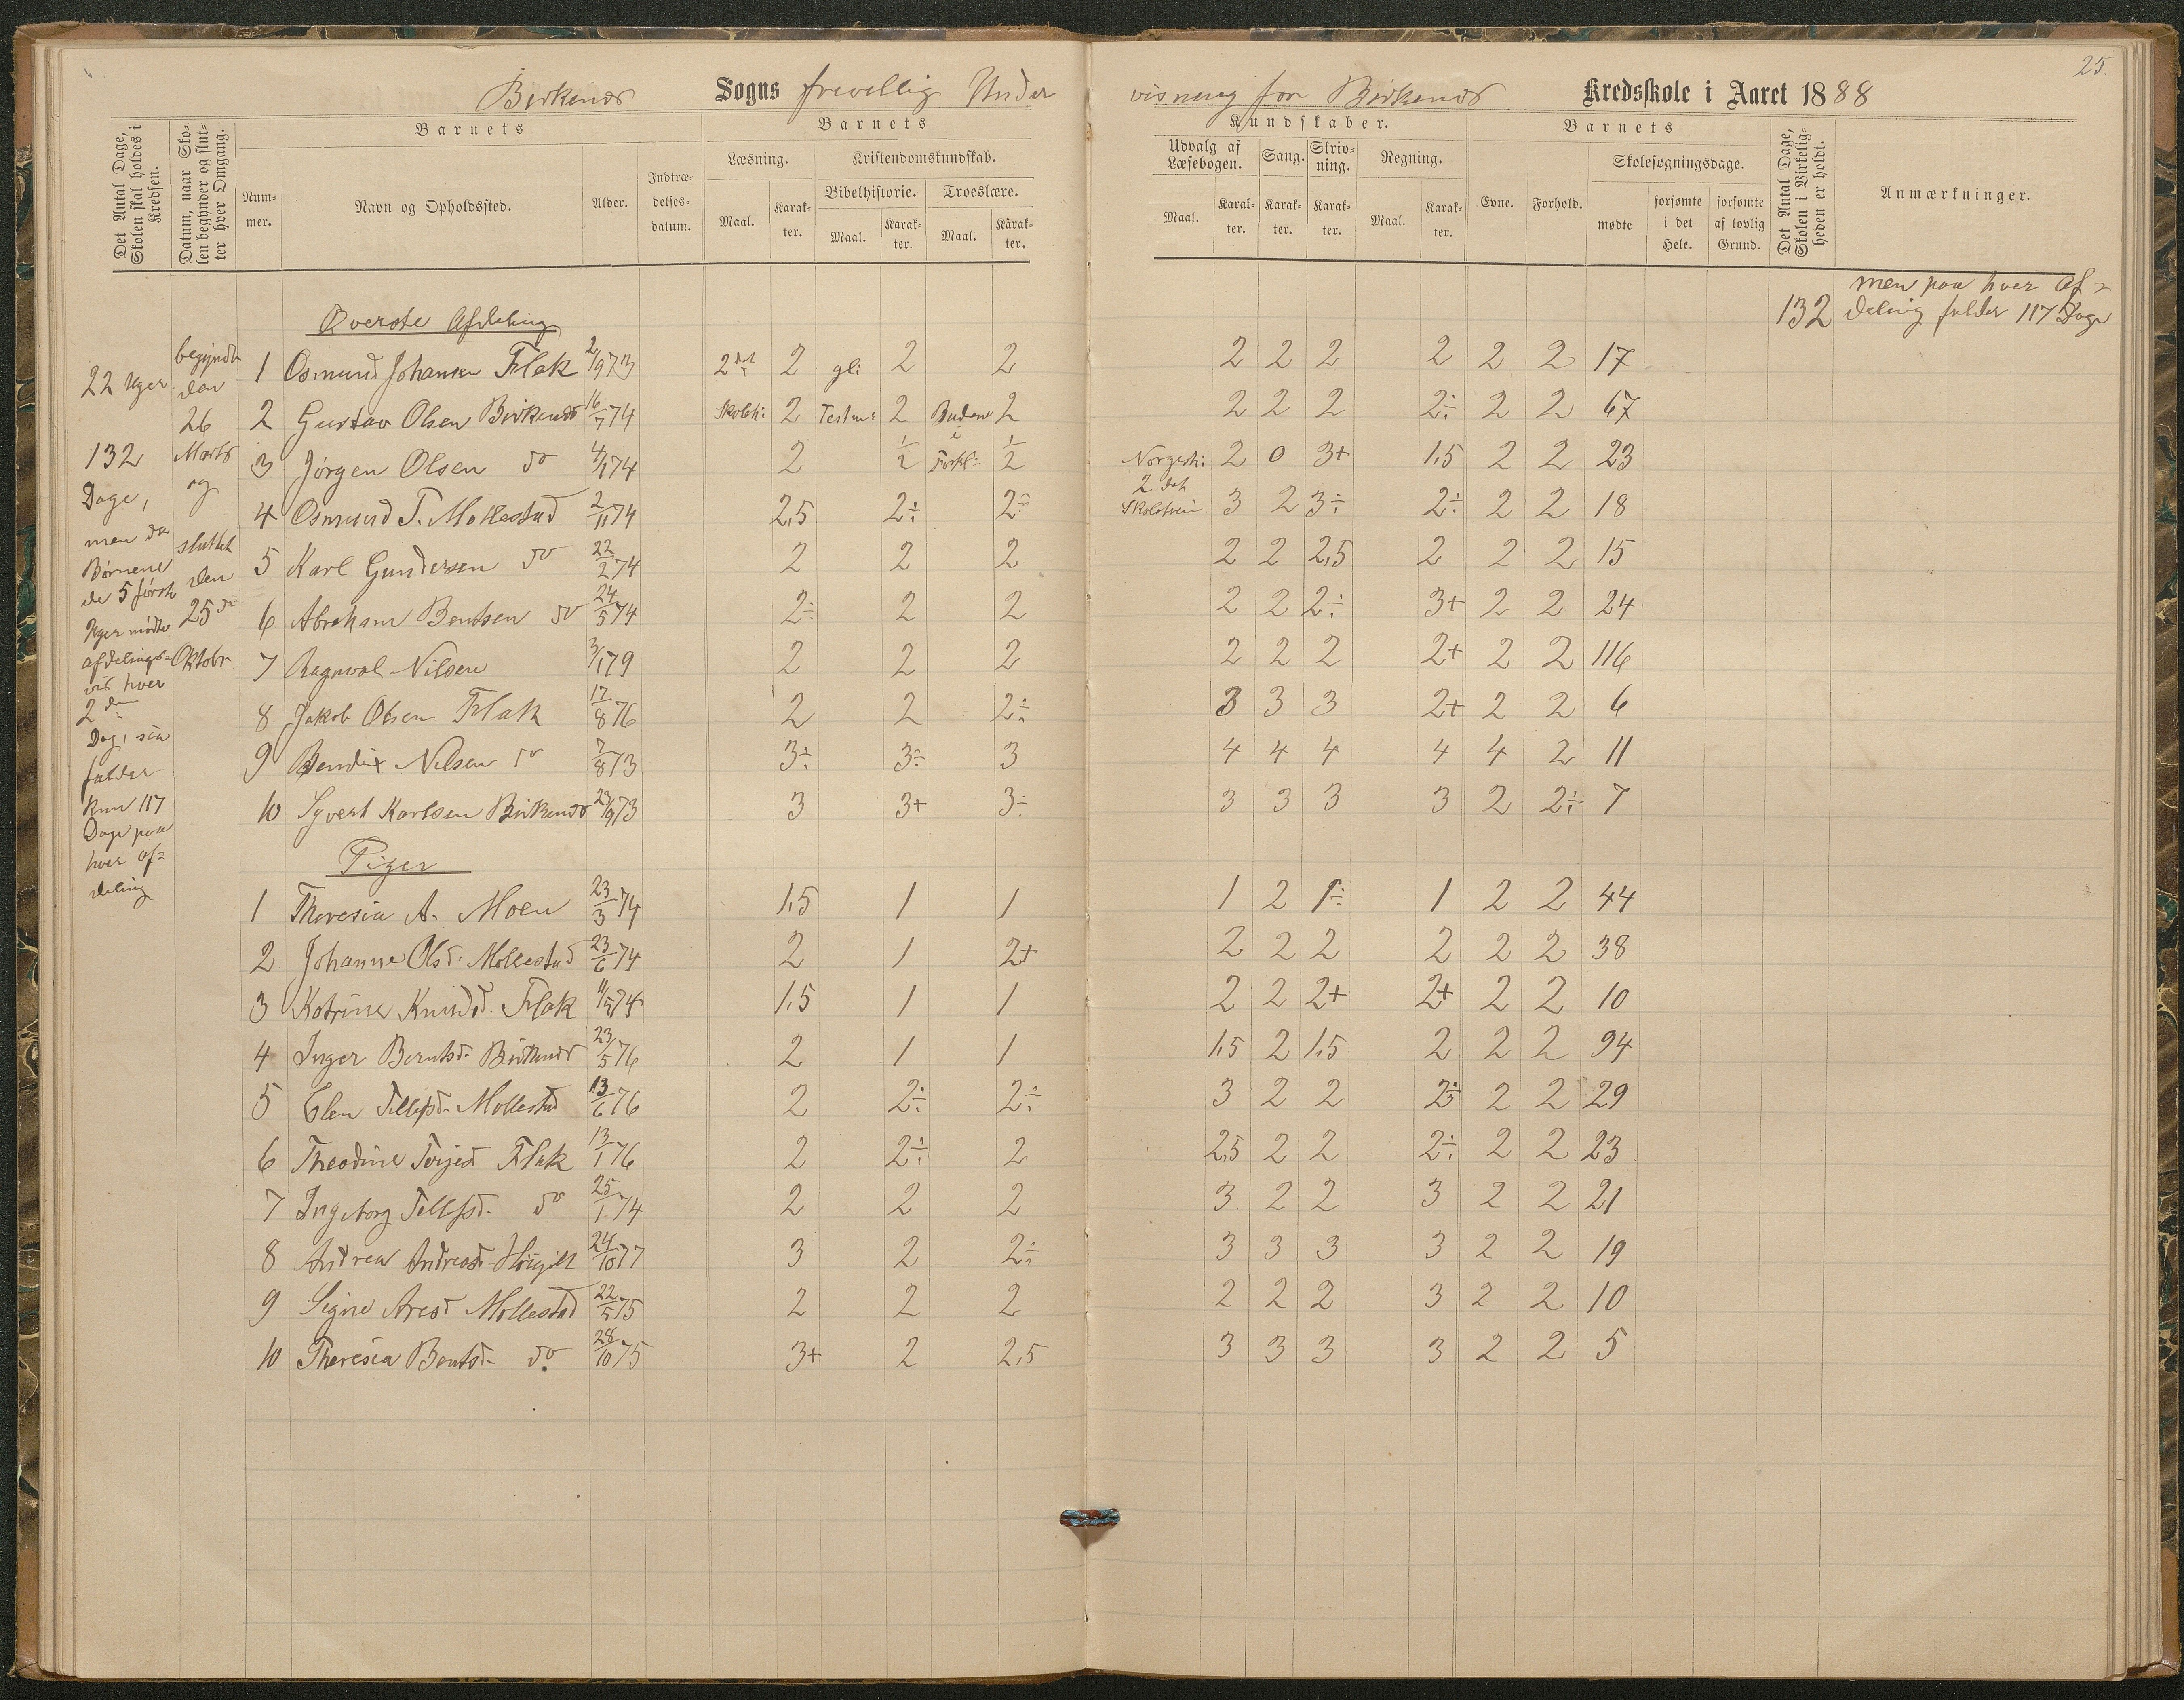 25.
Birkenes Sogns frivillig Under visning for Birkenes Kredsskole i Aaret 1888
Det Antal Dage, Skolen skal holdes i Kredsen.
Datum, naar Skolen begynder og slutter hver Omgang.
Barnets
Nummer.
Navn og Opholdssted.
Alder.
Indtrædelsesdatum.
Barnets Kundskaber.
Læsning.
Maal. Karakter.
Kristendomskundskab.
Bibelhistorie.
Maal. Karakter.
Troeslære.
Maal. Karakter.
Udvalg af Læsebogen.
Maal. Karakter.
Sang.
Karakter.
Skrivning.
Karakter.
Regning.
Maal. Karakter.
Barnets
Evne. Forhold.
Skolesøgningsdage.
mødte
forsømte i det Hele.
forsømte af lovlig Grund.
Det Antal Dage, Skolen i Virkeligheden er holdt.
Anmærkninger.
132 men paa hver Af=
deling falder 117 Dage
22 Uger.
132
Dage,
men da
Børnene
de 5 første
Uger mødte
afdelings=
vis hver
2den
Dag, saa
falder
kun 117
Dage paa
hver af=
deling
begyndte
den
26
Marts
og
sluttet
den
25de
Oktobr
Øverste Afdeling
1 Osmund Johansen Flak 2/9 73 2det 2 gl: 2 2 2 2 2 2 2 2 17
2 Gustav Olsen Birkenes 16/7 74 Skolet: 2 Testm: 2 Budene 2 2 2 2 2÷ 2 2 67
3 Jørgen Olsen do 4/1 74 2 1/2 i Forkl: 1/2 Norgesh: 2 0 3+ 1,5 2 2 23
4 Osmund T. Mollestad 2/11 74 2,5 2÷ 2÷ 2det Skoletrin 3 2 3÷ 2÷ 2 2 18
5 Karl Gundersen do 22/2 74 2 2 2 2 2 2,5 2 2 2 15
6 Abraham Bentsen do 24/5 74 2÷ 2 2 2 2 2÷ 3+ 2 2 24
7 Ragnval Nilsen 3/1 79 2 2 2 2 2 2 2+ 2 2 116
8 Jakob Olsen Flak 17/8 76 2 2 2÷ 3 3 3 2+ 2 2 6
9 Bendix Nilsen do 7/8 73 3÷ 3÷ 3 4 4 4 4 4 2 11
10 Syvert Karlsen Birkenes 23/9 73 3 3+ 3÷ 3 3 3 3 2 2÷ 7
Piger
1 Theresia A. Moen 23/3 74 1,5 1 1 1 2 1÷ 1 2 2 44
2 Johanne Olsd. Mollestad 23/6 74 2 1 2+ 2 2 2 2 2 2 38
3 Katrine Knudsd. Flak 11/5 74 1,5 1 1 2 2 2+ 2+ 2 2 10
4 Inger Berntsd. Birkenes 23/5 76 2 1 1 1,5 2 1,5 2 2 2 94
5 Elen Tellefsd. Mollestad 13/6 76 2 2÷ 2÷ 3 2 2 2÷ 2 2 29
6 Theodine Terjesd Flak 13/1 76 2 2÷ 2 2,5 2 2 2÷ 2 2 23
7 Ingeborg Tellefsd. do 25/1 74 2 2 2 3 2 2 3 2 2 21
8 Andrea Andreasd. 24/10 77 3 2 2÷ 3 3 3 3 2 2 19
9 Signe Aresd Mollestad 22/5 75 2 2 2 2 2 2 3 2 2 10
10 Theresia Bentsd. do. 28/10 75 3+ 2 2,5 3 3 3 3 2 2 5